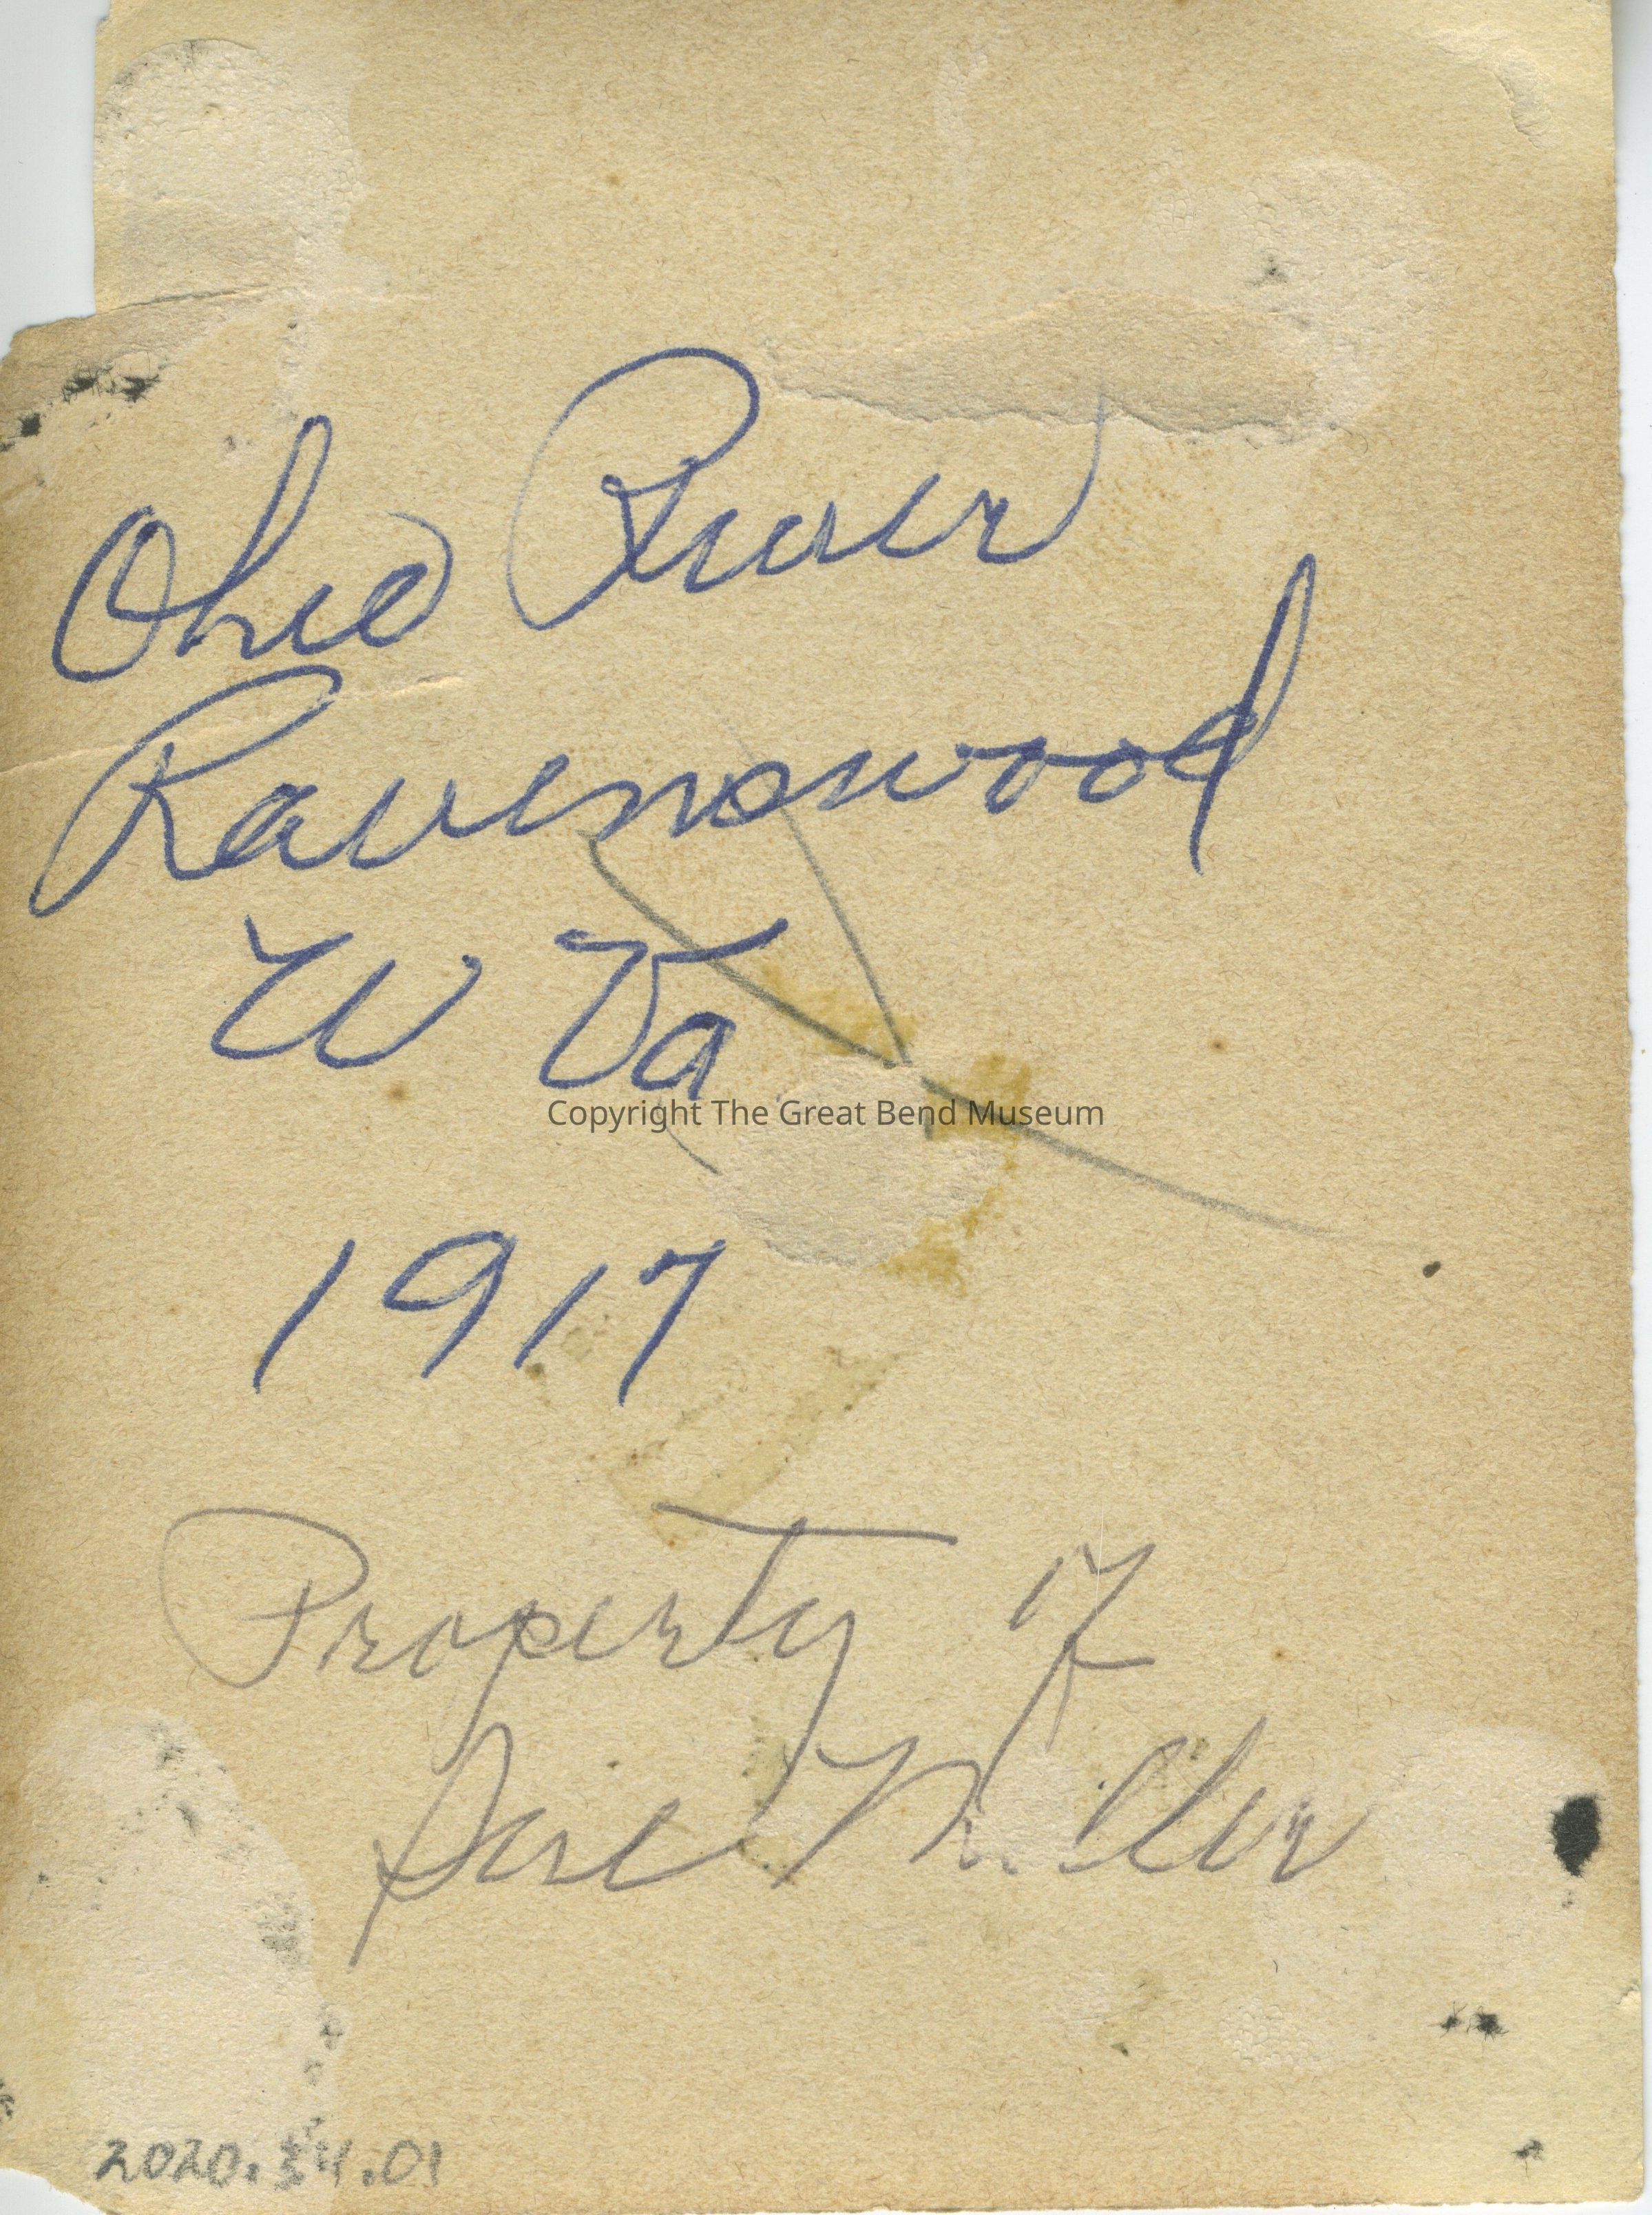 Ohio River
Ravenswood
W Va
Copyright The Great Bend Museum
1917
Property of
Miller
2020.34.01